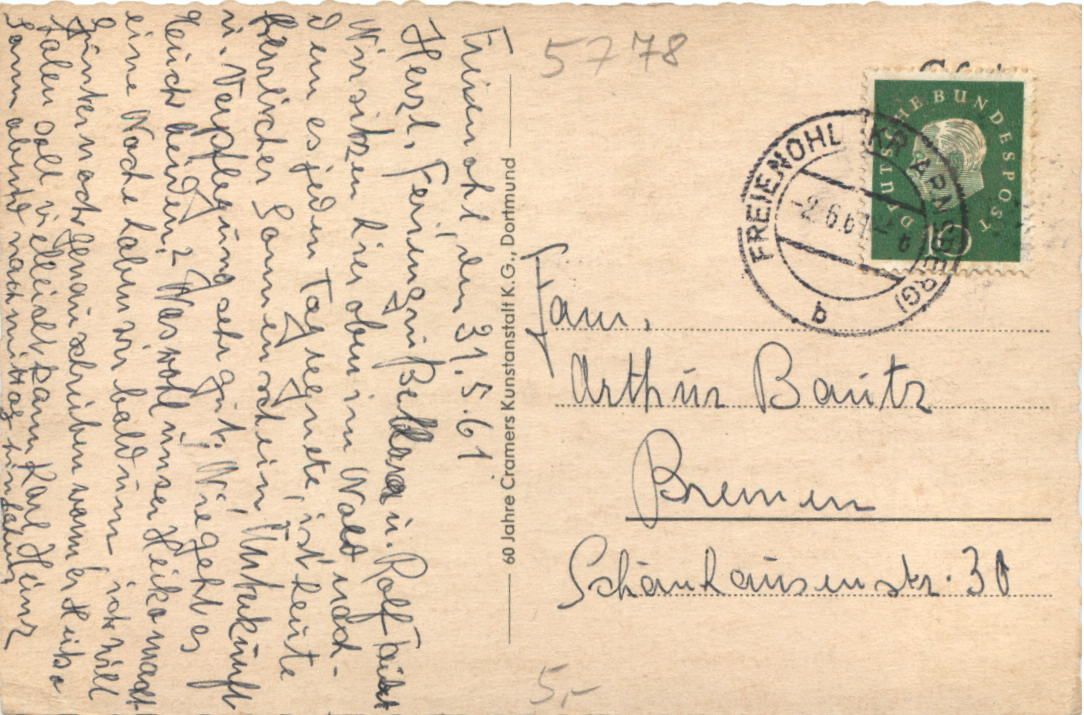 Freienohl, den 31.5.61
Herzl. Feriengrüße u. Rolf
Wir sitzen hier oben im Wald nach-
dem es jeden Tag regnete, ist heute
herrlicher Sonnenschein Unterkunft
u. Verpflegung sehr gut. Wie geht es
Euch beiden? Was wohl unser Heiko macht
eine Woche haben wir bald rum, ich will
Günter noch genau schreiben wann er Heiko
holen soll vielleicht kann Karl Heinz
Sonnabend nachmittag hinfahren
60 Jahre Cramers Kunstanstalt K.G., Dortmund
5778
DEUTSCHE BUNDESPOST
FREIENOHL (KR ARNSBERG)
-2.6.61
b
Fam.
Arthur Bautz
Bremen
Schönhausenstr. 30
5,-